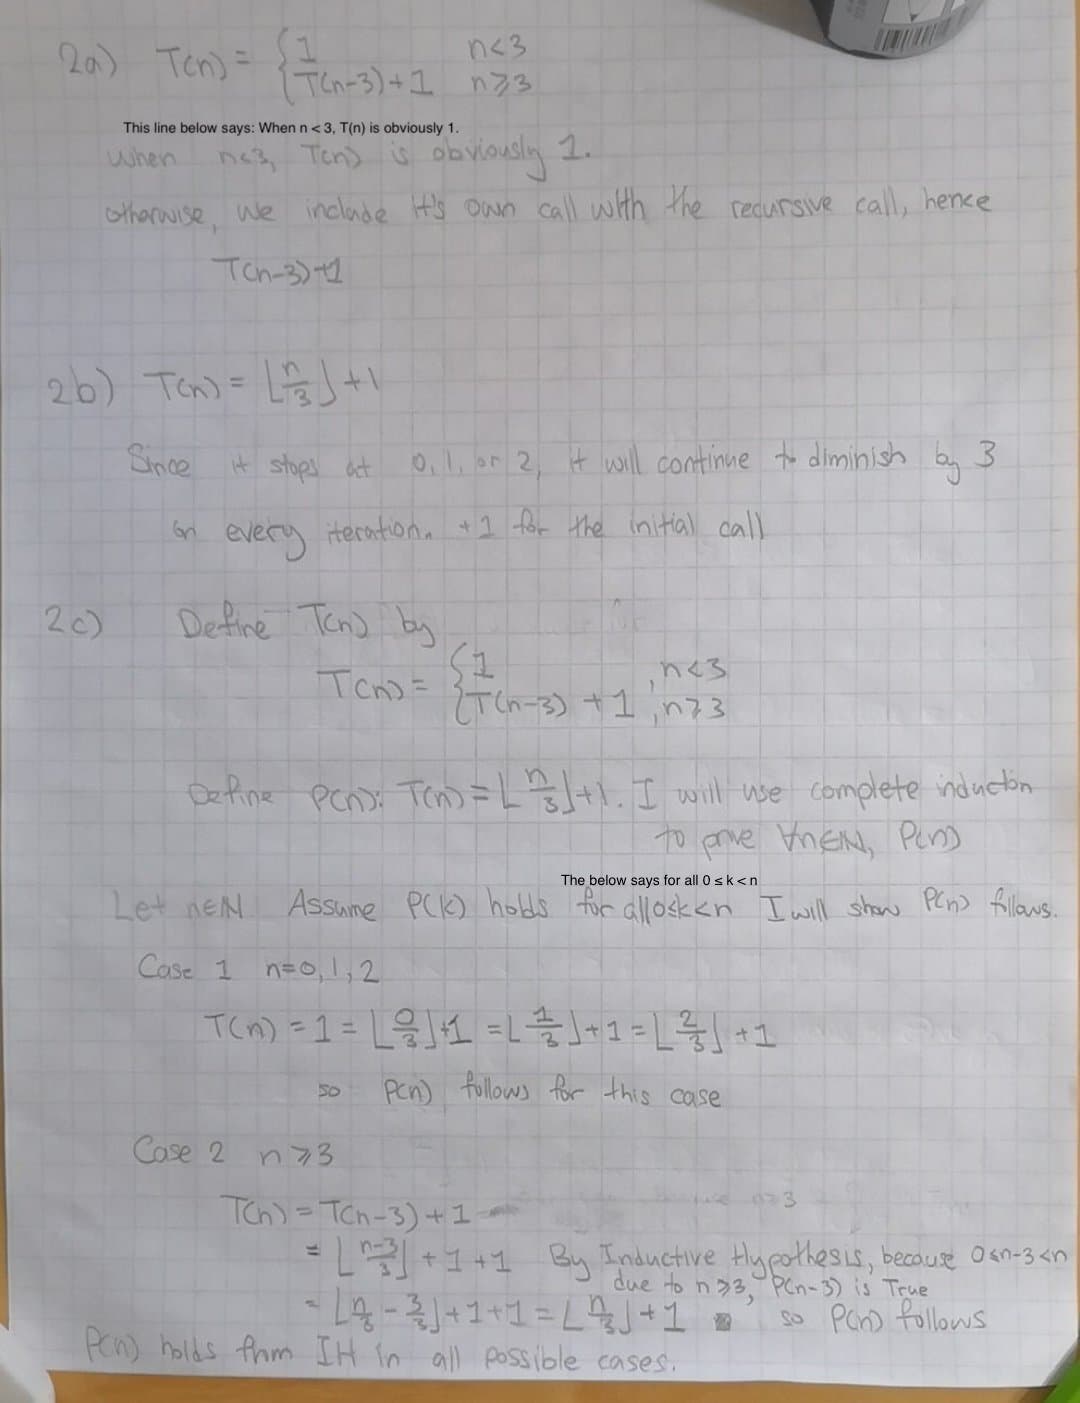 2a) T(n) = { 1 n<3
T(n-3)+1 n≥3
This line below says: When n < 3, T(n) is obviously 1.
When n<3, T(n) is obviously 1.
otherwise, we include it's own call with the recursive call, hence
T(n-3)+1
2b) T(n) = ⌊n/3⌋+1
Since it stops at 0, 1, or 2, it will continue to diminish by 3
on every iteration. +1 for the initial call
2c) Define T(n) by
T(n) = { 1 , n<3
T(n-3) + 1 , n≥3
Define P(n): T(n) = ⌊n/3⌋+1. I will use complete induction
to prove ∀n∈N, P(n)
The below says for all 0 ≤ k < n
Let n∈N Assume P(k) holds for all 0≤k<n I will show P(n) follows.
Case 1 n=0,1,2
T(n) = 1 = ⌊0/3⌋+1 = ⌊1/3⌋+1 = ⌊2/3⌋+1
so P(n) follows for this case
Case 2 n≥3
T(n) = T(n-3)+1
= ⌊(n-3)/3⌋ + 1 + 1 By Inductive Hypothesis, because 0≤n-3<n
due to n≥3, P(n-3) is True
= ⌊n/3 - 3/3⌋+1+1 = ⌊n/3⌋+1 so P(n) follows
P(n) holds from IH in all possible cases.